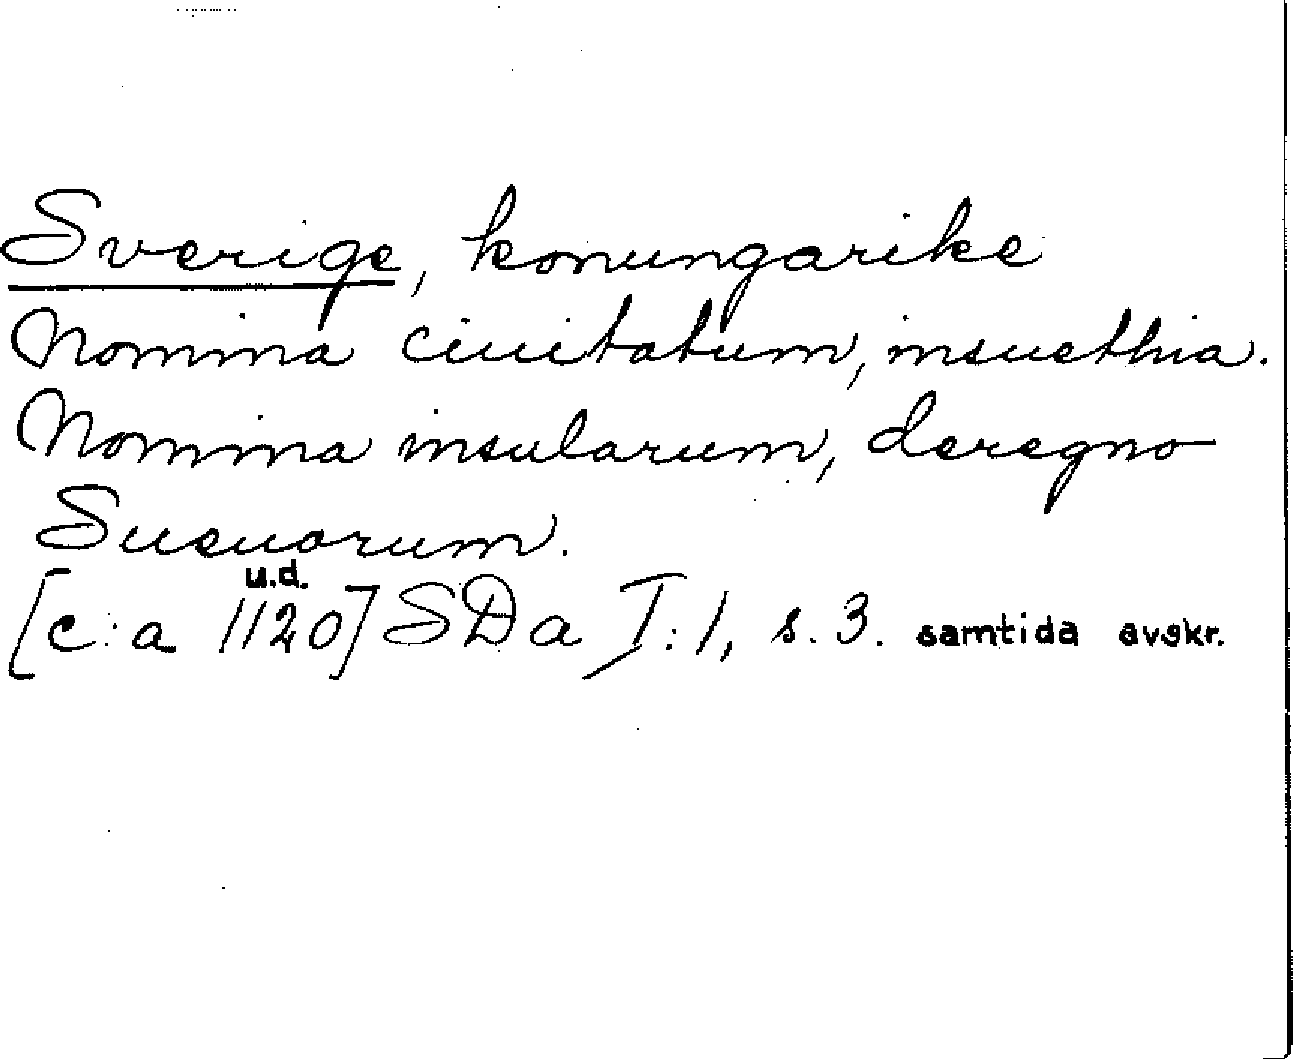 Sverige, konungarike
Nomina ciuitatum, insuethia.
Nomina insularum, deregno
Sueuorum.
u.d.
[c:a 1120] SDa I:1, s. 3. samtida avskr.